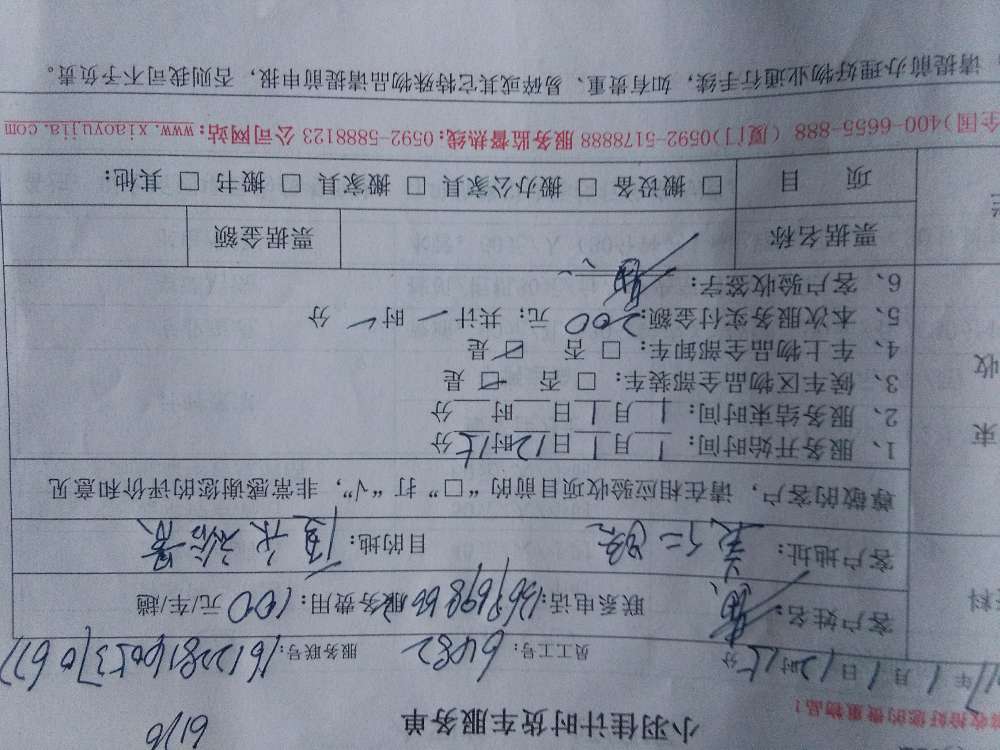 6176
小羽佳计时货车服务单
收检好您的贵重物品!
17年1月1日12时15分 员工工号: 6482 服务联号:
客户姓名: 联系电话: 服务费用: 100 元/车/趟
客户地址: 目的地:
尊敬的客户，请在相应验收项目前的“□”打“√”，非常感谢您的评价和意见
1、服务开始时间: 1月1日12时15分
2、服务结束时间: 1月1日 时 分
3、候车区物品全部装车: □ 否 ☑ 是
4、车上物品全部卸车: □ 否 ☑ 是
5、本次服务实付金额: 200 元; 共计 时 分
6、客户验收签字:
票据名称 票据金额
项 目 □ 搬设备 □ 搬办公家具 □ 搬家具 □ 搬书 □ 其他:
全国)400-6655-888 (厦门)0592-5178888 服务监督热线:0592-5888123 公司网站:www.xiaoyujia.com
请提前办理好物业通行手续，如有贵重、易碎或其它特殊物品请提前申报，否则我司不予负责。
束
收